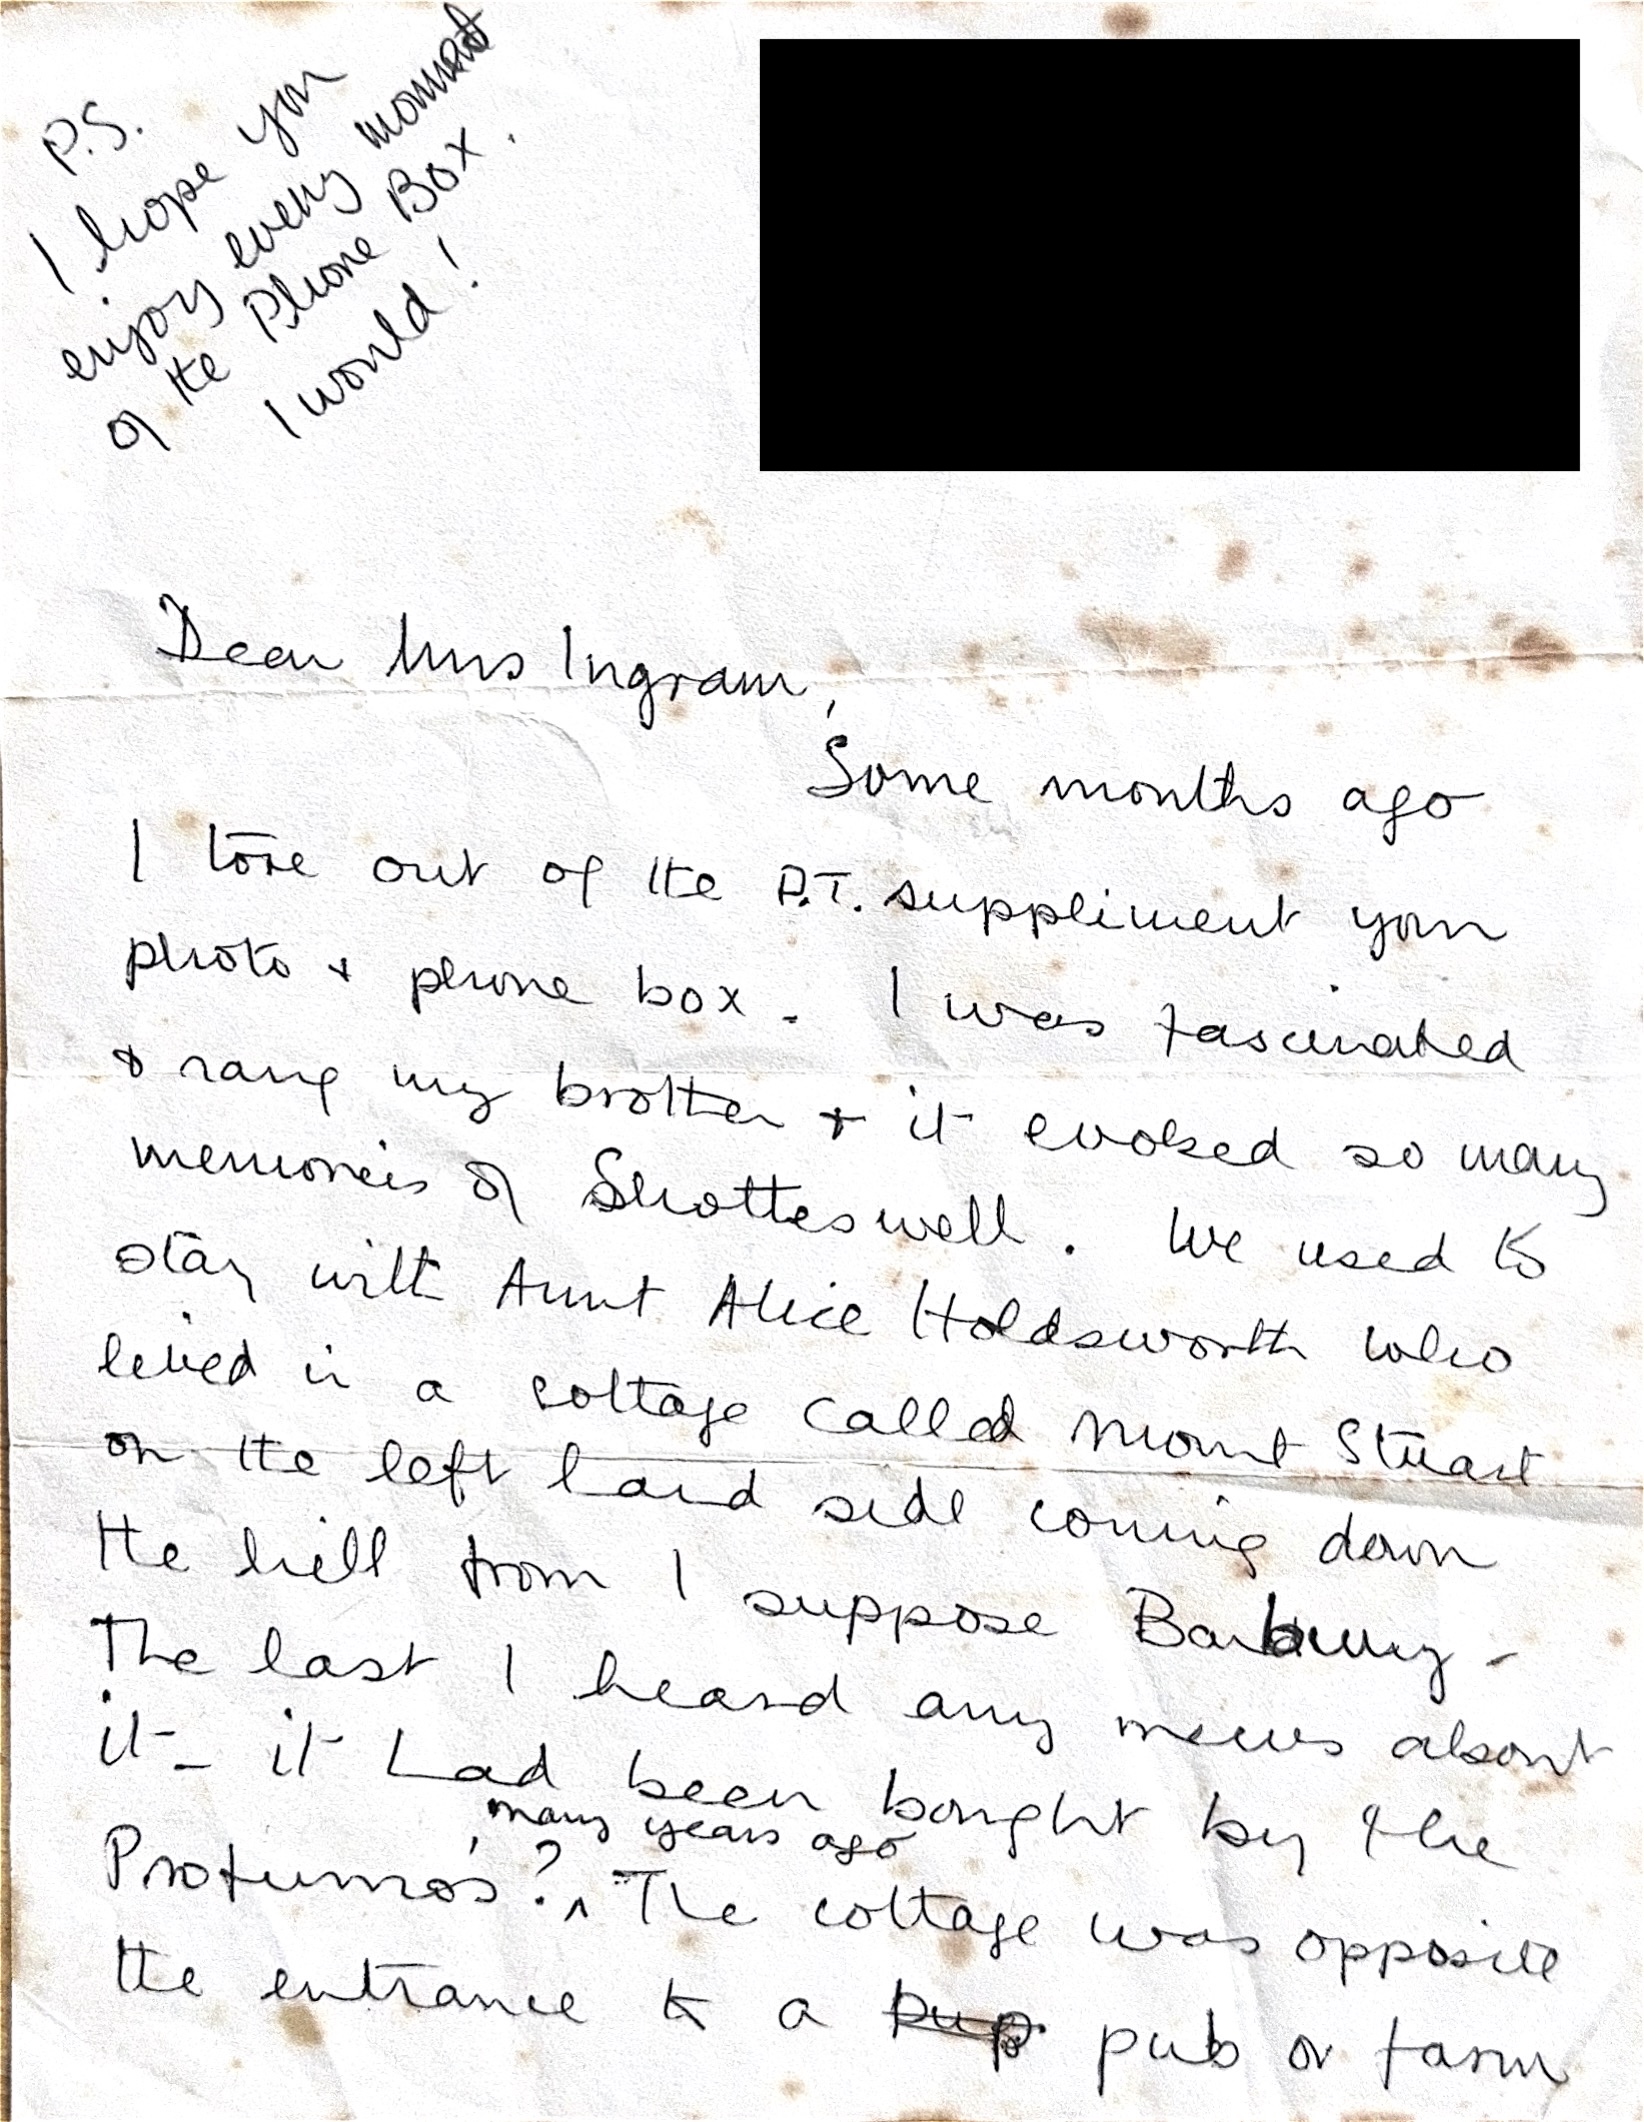 P.S.
I hope you
enjoy every moment
of the Phone Box.
I would!
Dear Mrs Ingram,
Some months ago
I tore out of the D.T. suppliment your
photo + phone box. I was fascinated
+ rang my brother + it evoked so many
memories of Shotteswell. We used to
stay with Aunt Alice Holdsworth who
lived in a cottage called Mount Stuart
on the left hand side coming down
the hill from I suppose Banbury -
The last I heard any news about
it - it had been bought by the
many years ago
Profumo's? ^ The cottage was opposite
the entrance to a pub or farm